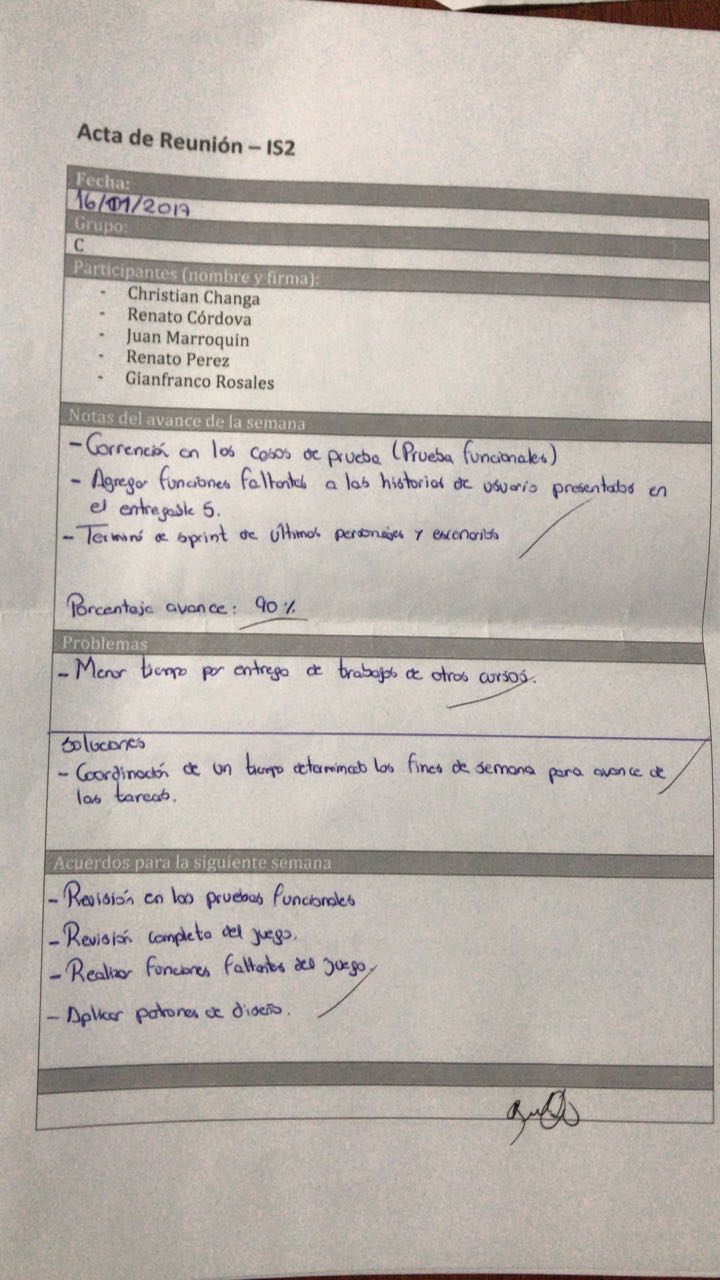 Acta de Reunión – IS2
Fecha:
16/11/2017
Grupo:
C
Participantes (nombre y firma):
- Christian Changa
- Renato Córdova
- Juan Marroquin
- Renato Perez
- Gianfranco Rosales
Notas del avance de la semana
- Corrención en los casos de prueba (Prueba funcionales)
- Agregar funciones faltantes a las historias de usuario presentados en
el entregable 5.
- Terminó de sprint de últimos personajes y escenarios
Porcentaje avance: 90 %
Problemas
- Menor tiempo por entrega de trabajos de otros cursos.
Soluciones
- Coordinación de un tiempo determinado los fines de semana para avance de
las tareas.
Acuerdos para la siguiente semana
- Revisión en las pruebas funcionales
- Revisión completa del juego.
- Realizar funciones faltantes del juego.
- Aplicar patrones de diseño.